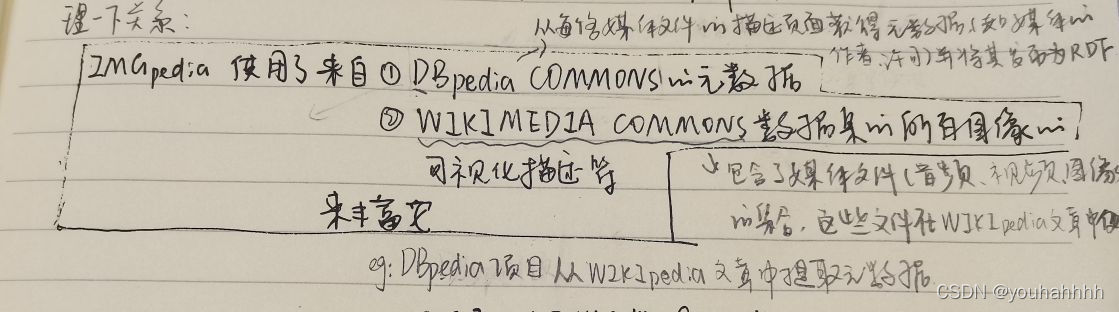 理一下关系：
从每个媒体文件的描述页面获得元数据（如媒体的
作者、许可）并将其发布为RDF
IMGpedia 使用了来自 ① DBpedia COMMONS的元数据
② WIKIMEDIA COMMONS 数据集的所有图像的
可视化描述符
来丰富它
包含了媒体文件（音频、视频、图像
的集合，这些文件在WIKIpedia文章中
eg: DBpedia项目从WIKIpedia文章中提取元数据
CSDN @youhahhhh